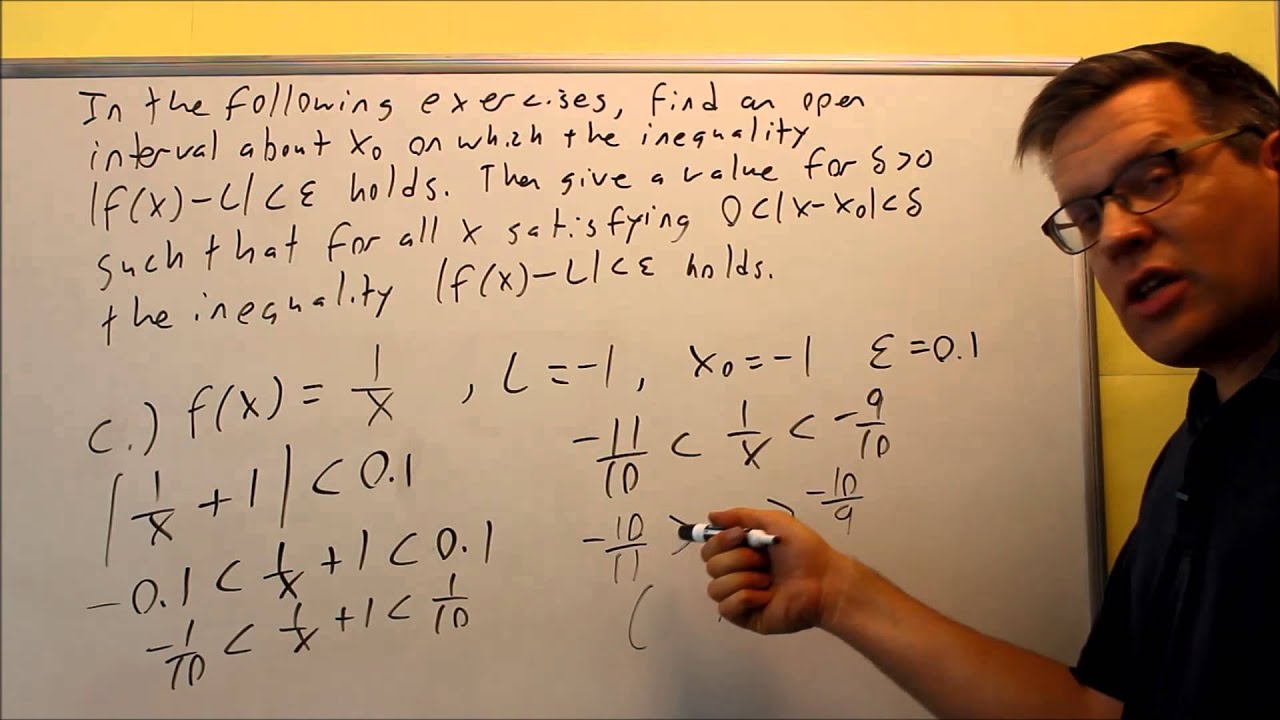 In the following exercises, find an open
interval about x₀ on which the inequality
|f(x)-L|<ε holds. Then give a value for δ>0
such that for all x satisfying 0<|x-x₀|<δ
the inequality |f(x)-L|<ε holds.
c.) f(x) = 1/x , L = -1, x₀ = -1 ε = 0.1
|1/x + 1| < 0.1
-0.1 < 1/x + 1 < 0.1
-1/10 < 1/x + 1 < 1/10
-11/10 < 1/x < -9/10
-10/11 > > -10/9
(